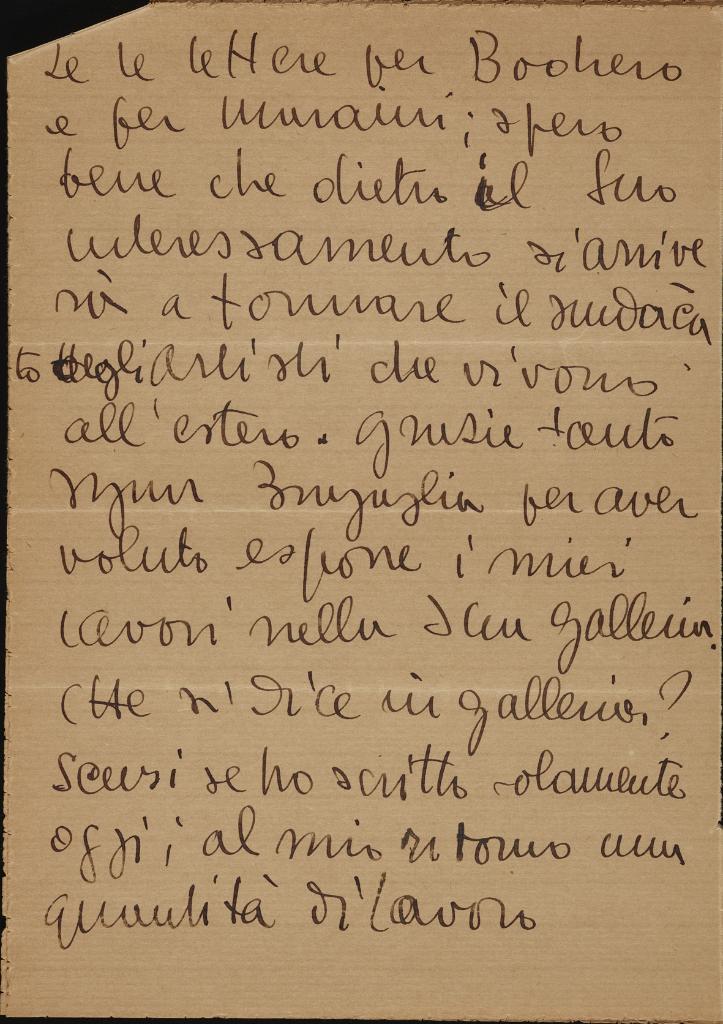 Le le lettere per Bochero
e per Muraini; spero
bene che dietro il Suo
interessamento si arrive
rà a formare il sindaca
to degli Artisti che vivono
all'estero. Grazie tanto
Signor Bragaglia per aver
voluto esporre i miei
lavori nella Sua Galleria.
Che si dice in galleria?
Scusi se ho scritto solamente
oggi; al mio ritorno una
quantità di lavoro